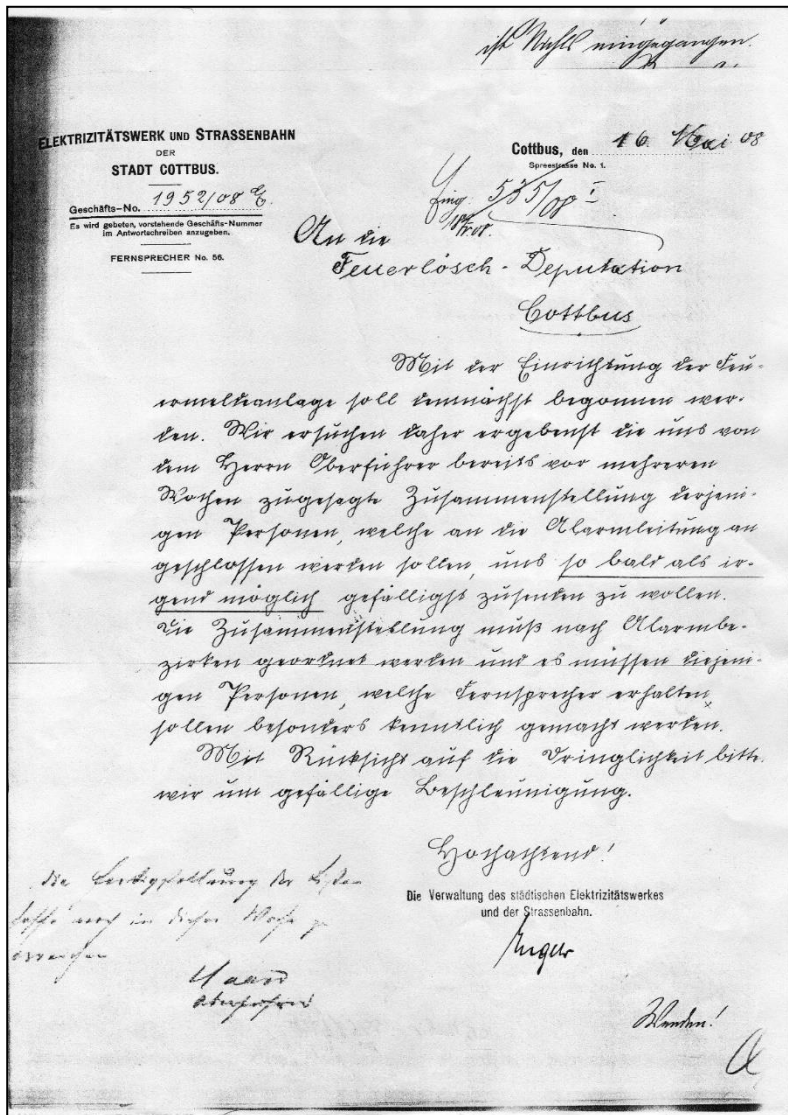 ist Nichts eingegangen.
ELEKTRIZITÄTSWERK UND STRASSENBAHN
DER
STADT COTTBUS.
Geschäfts-No. 1952/08 E.
Es wird gebeten, vorstehende Geschäfts-Nummer
im Antwortschreiben anzugeben.
FERNSPRECHER No. 56.
Cottbus, den 16. Mai 08
Spreestrasse No. 1.
535/08 I
An die
Feuerlösch-Deputation
Cottbus
Mit der Einrichtung der Feu-
ermeldeanlage soll demnächst begonnen wer-
den. Wir ersuchen daher ergebenst die uns von
dem Herrn Oberführer bereits vor mehreren
Wochen zugesagte Zusammenstellung derjeni-
gen Personen, welche an die Alarmleitung an
geschlossen werden sollen, uns so bald als ir-
gend möglich gefälligst zusenden zu wollen.
Die Zusammenstellung muß nach Alarmbe-
zirken geordnet werden und es müssen diejeni-
gen Personen, welche Fernsprecher erhalten
sollen besonders kenntlich gemacht werden.
Mit Rücksicht auf die Dringlichkeit bitte
wir um gefällige Beschleunigung.
Hochachtend!
Die Verwaltung des städtischen Elektrizitätswerkes
und der Strassenbahn.
die Fertigstellung der Liste
hoffe noch in dieser Woche zu
erreichen
Oberführer
Wenden!